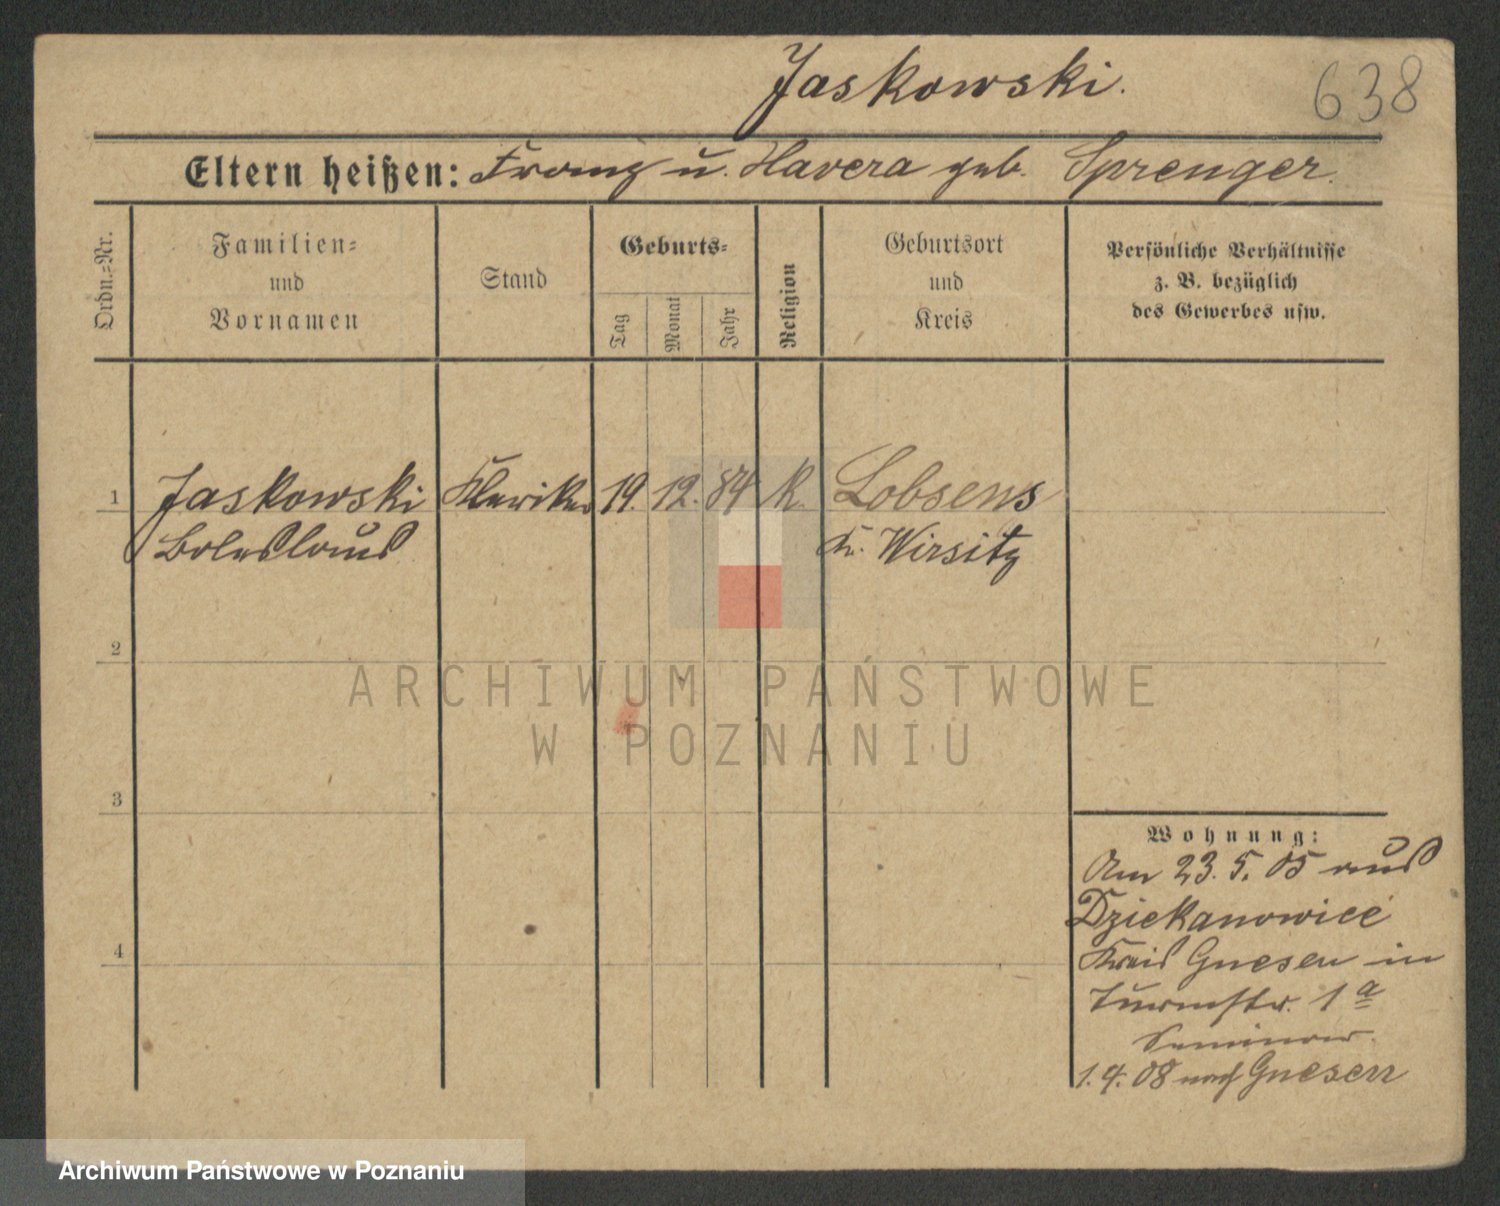 Jaskowski.
638
Eltern heißen: Franz u. Xavera geb. Sprenger.
Ordn.-Nr.
Familien-
und
Vornamen
Stand
Geburts-
Tag
Monat
Jahr
Religion
Geburtsort
und
Kreis
Persönliche Verhältnisse
z. B. bezüglich
des Gewerbes usw.
1 Jaskowski Kleriker 19. 12. 84 k. Lobsens
Boleslaus Kr. Wirsitz
2
3
4
Wohnung:
Am 23. 5. 05 aus
Dziekanowice
Kreis Gnesen in
Turmstr. 1 a
Seminar.
1. 4. 08 nach Gnesen
ARCHIWUM PAŃSTWOWE
W POZNANIU
Archiwum Państwowe w Poznaniu